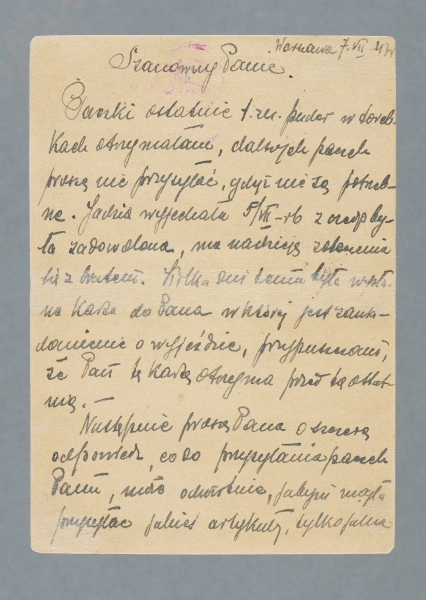 Warszawa 7. VII.
Szanowny Panie.
Paczki ostatnie t. zn. puder w toreb-
kach otrzymałam, dalszych paczek
proszę nie przysyłać, gdyż nie są potrzeb-
ne. Jadzia wyjechała 5/VII-rb z
ła zadowolona, ma nadzieję zobaczenia
się z bratem. Kilka dni temu była wysła-
na karta do Pana w której jest zawia-
domienie o wyjeździe, przypuszczam,
że Pan tę kartę otrzyma przed tą ostat-
nią. -
Następnie proszę Pana o szczerą
odpowiedź, co do przysyłania paczek
Panu, może odwrotnie, jakbym mogła
przysyłać jakieś artykuły, tylko